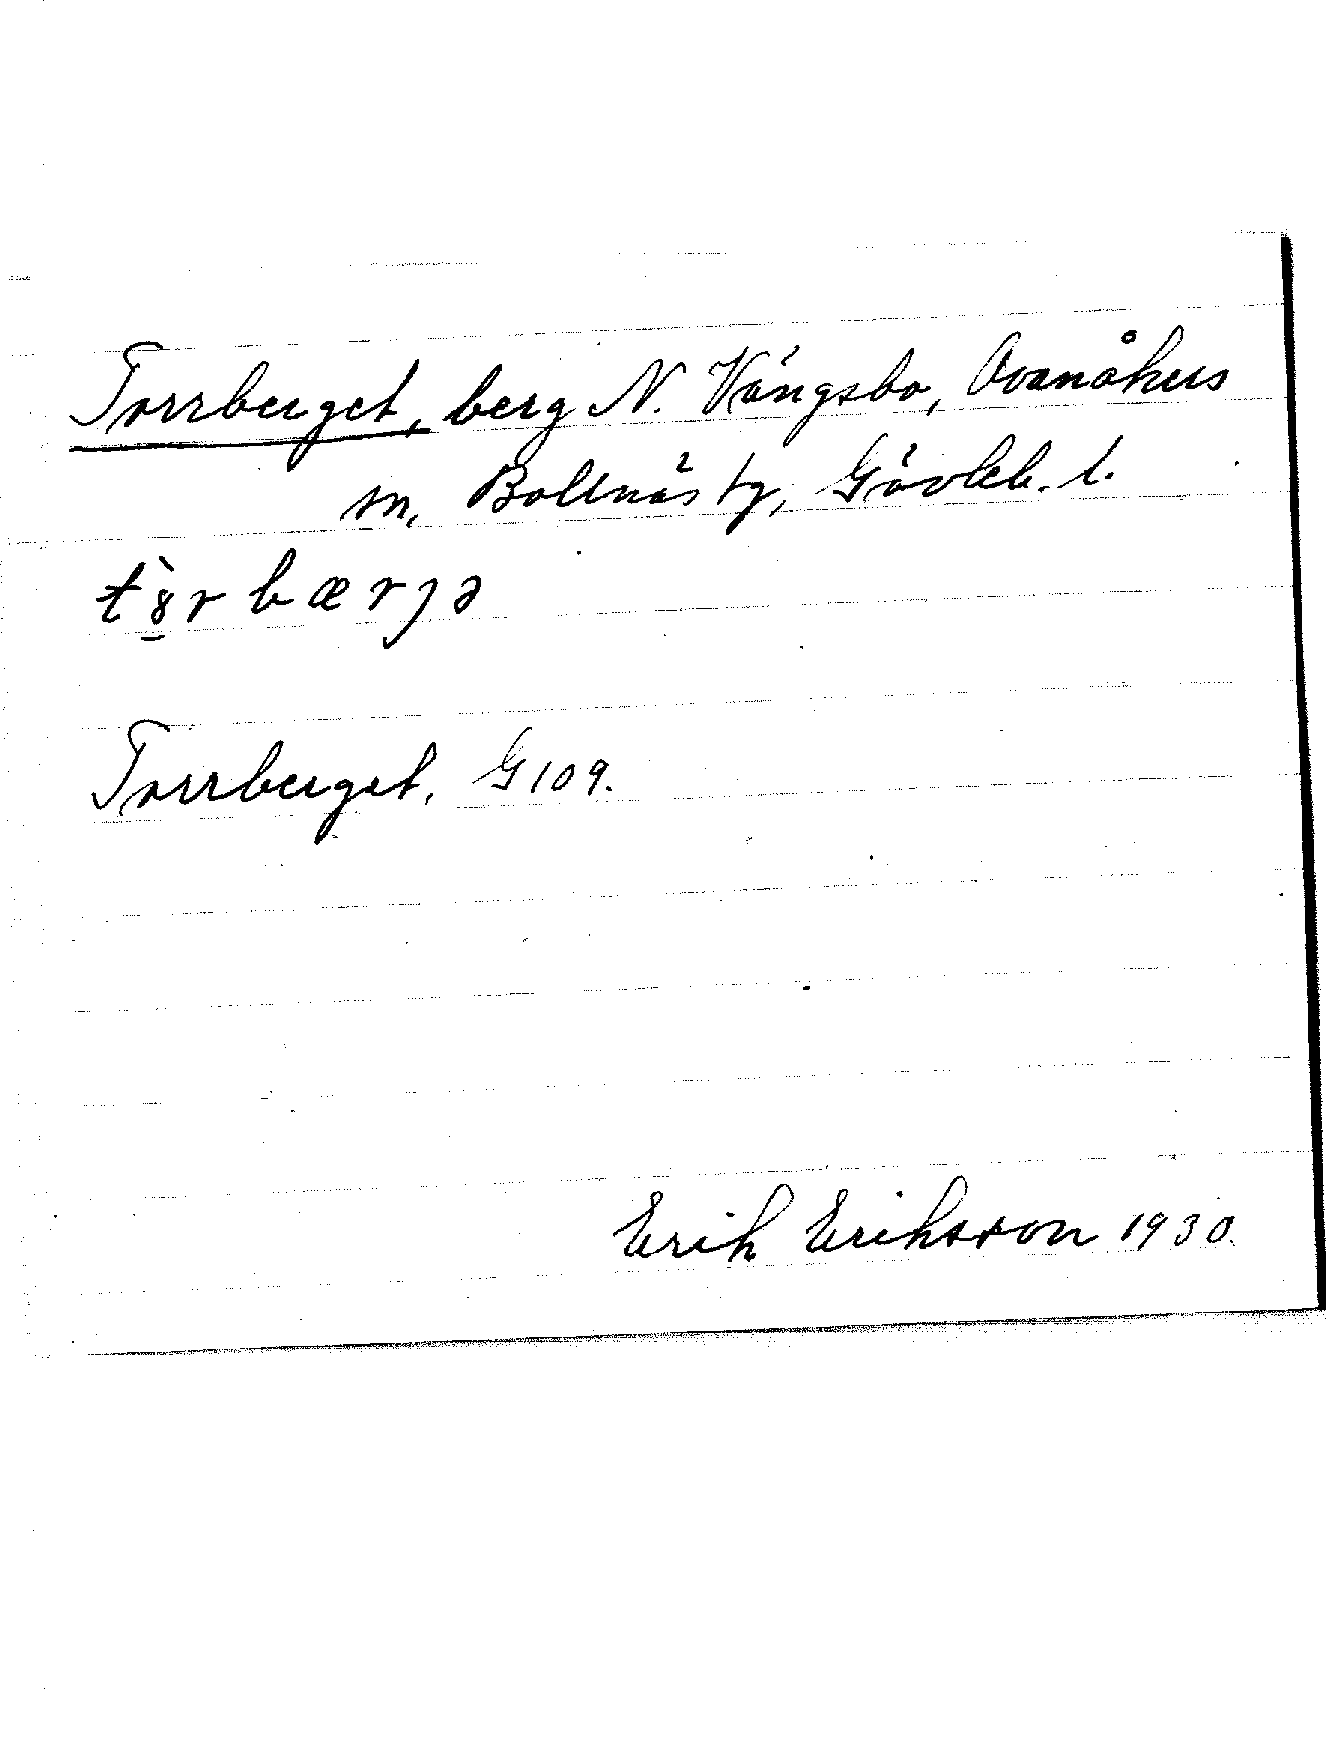 Torrberget, berg N. Vängsbo, Ovanåkers
sn, Bollnäs tg, Gävleb. l.
tö̀rbærjə
Torrberget, G 109.
Erik Eriksson 1930.